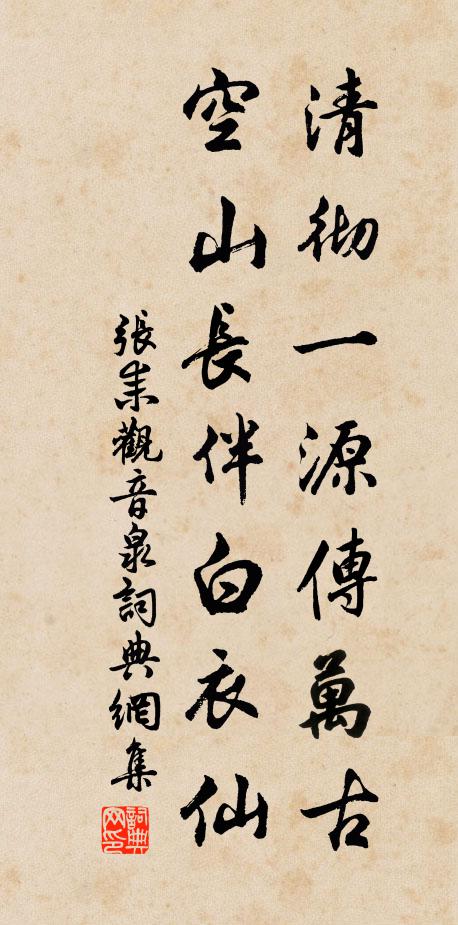 清徹一源傳萬古
空山長伴白衣仙
張耒觀音泉詞典網集
詞典
網印